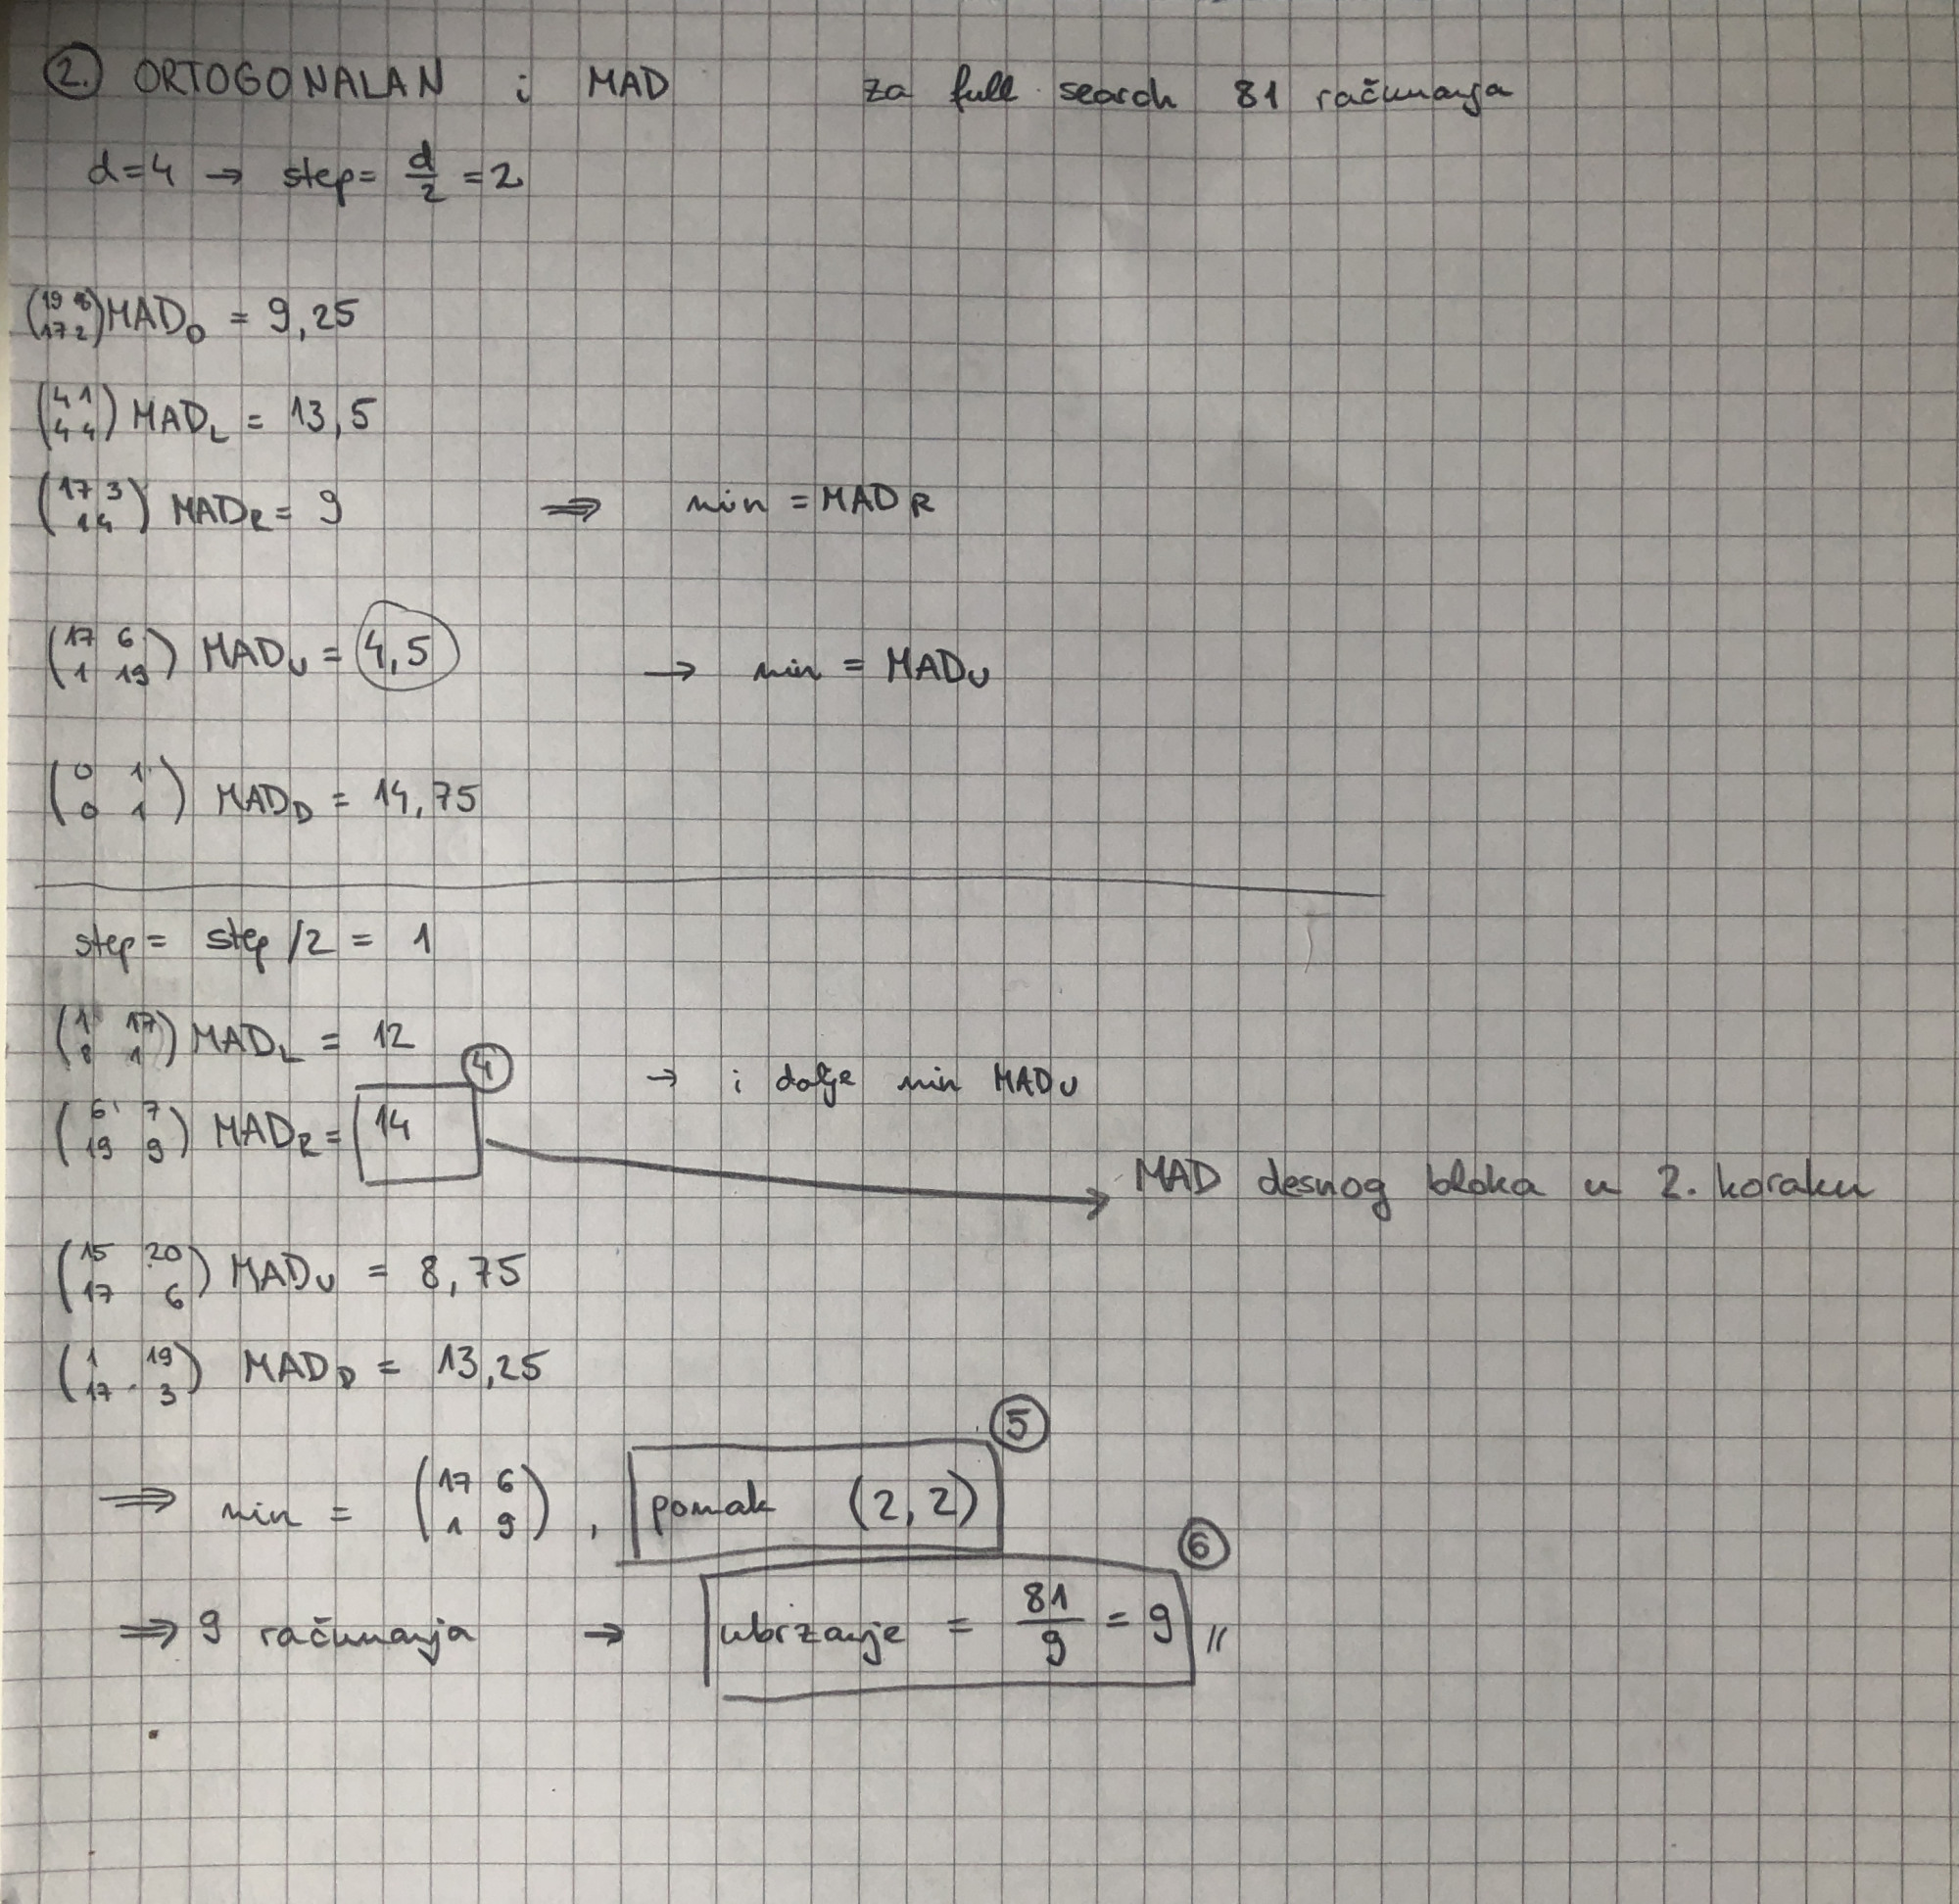 2. ORTOGONALAN i MAD za full search 81 računanja
d=4 → step= d/2 =2
(19 8 / 17 2) MAD₀ = 9,25
(4 1 / 4 4) MAD_L = 13,5
(17 3 / 1 4) MAD_R = 9 ⇒ min = MAD_R
(17 6 / 1 19) MAD_U = 4,5 → min = MAD_U
(0 1 / 0 1) MAD_D = 14,75
step = step /2 = 1
(1 17 / 8 1) MAD_L = 12
→ i dalje min MAD_U
(6 7 / 19 9) MAD_R = 14 ④
→ MAD desnog bloka u 2. koraku
(15 20 / 17 6) MAD_U = 8,75
(1 19 / 17 3) MAD_D = 13,25
⇒ min = (17 6 / 1 9), pomak (2,2) ⑤
⇒ 9 računanja → ubrzanje = 81/9 = 9 ⑥ //